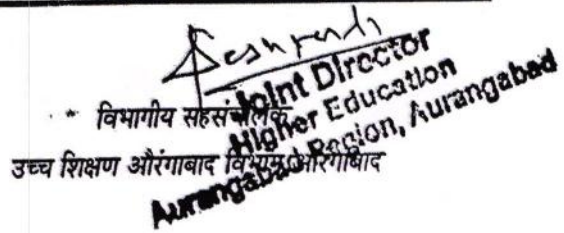 Deshpande
Joint Director
Higher Education
Aurangabad Region, Aurangabad
विभागीय सहसंचालक
उच्च शिक्षण औरंगाबाद विभाग, औरंगाबाद